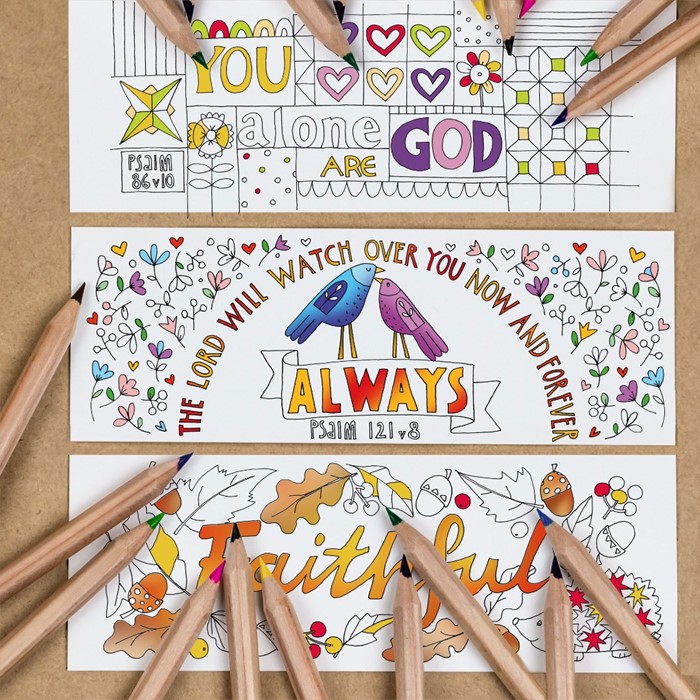 YOU
alone GOD
ARE
PSaIM
86 v 10
THE LORD WILL WATCH OVER YOU NOW AND FOREVER
ALWAYS
PSaIM 121 v 8
Faithful